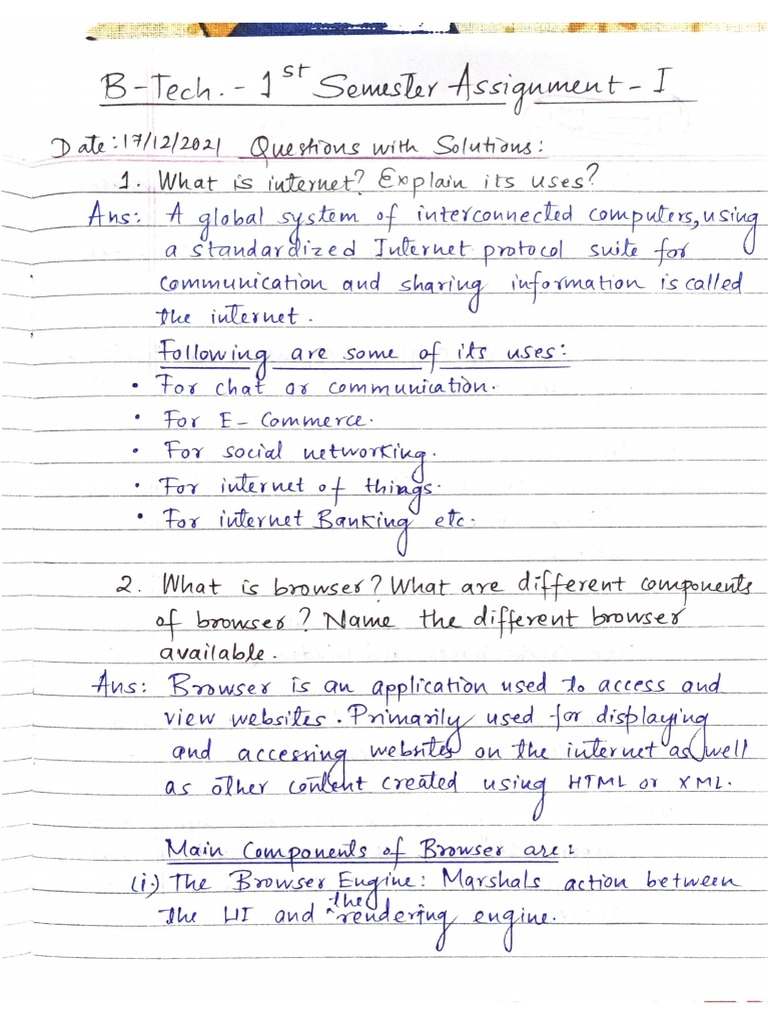 B-Tech. - 1st Semester Assignment - I
Date: 17/12/2021 Questions with Solutions:
1. What is internet? Explain its uses?
Ans: A global system of interconnected computers, using
a standardized Internet protocol suite for
communication and sharing information is called
the internet.
Following are some of its uses:
• For chat or communication.
• For E-Commerce.
• For social networking.
• For internet of things.
• For internet Banking etc.
2. What is browser? What are different components
of browser? Name the different browser
available.
Ans: Browser is an application used to access and
view websites. Primarily used for displaying
and accessing websites on the internet as well
as other content created using HTML or XML.
Main Components of Browser are:
(i.) The Browser Engine: Marshals action between
the UI and the rendering engine.